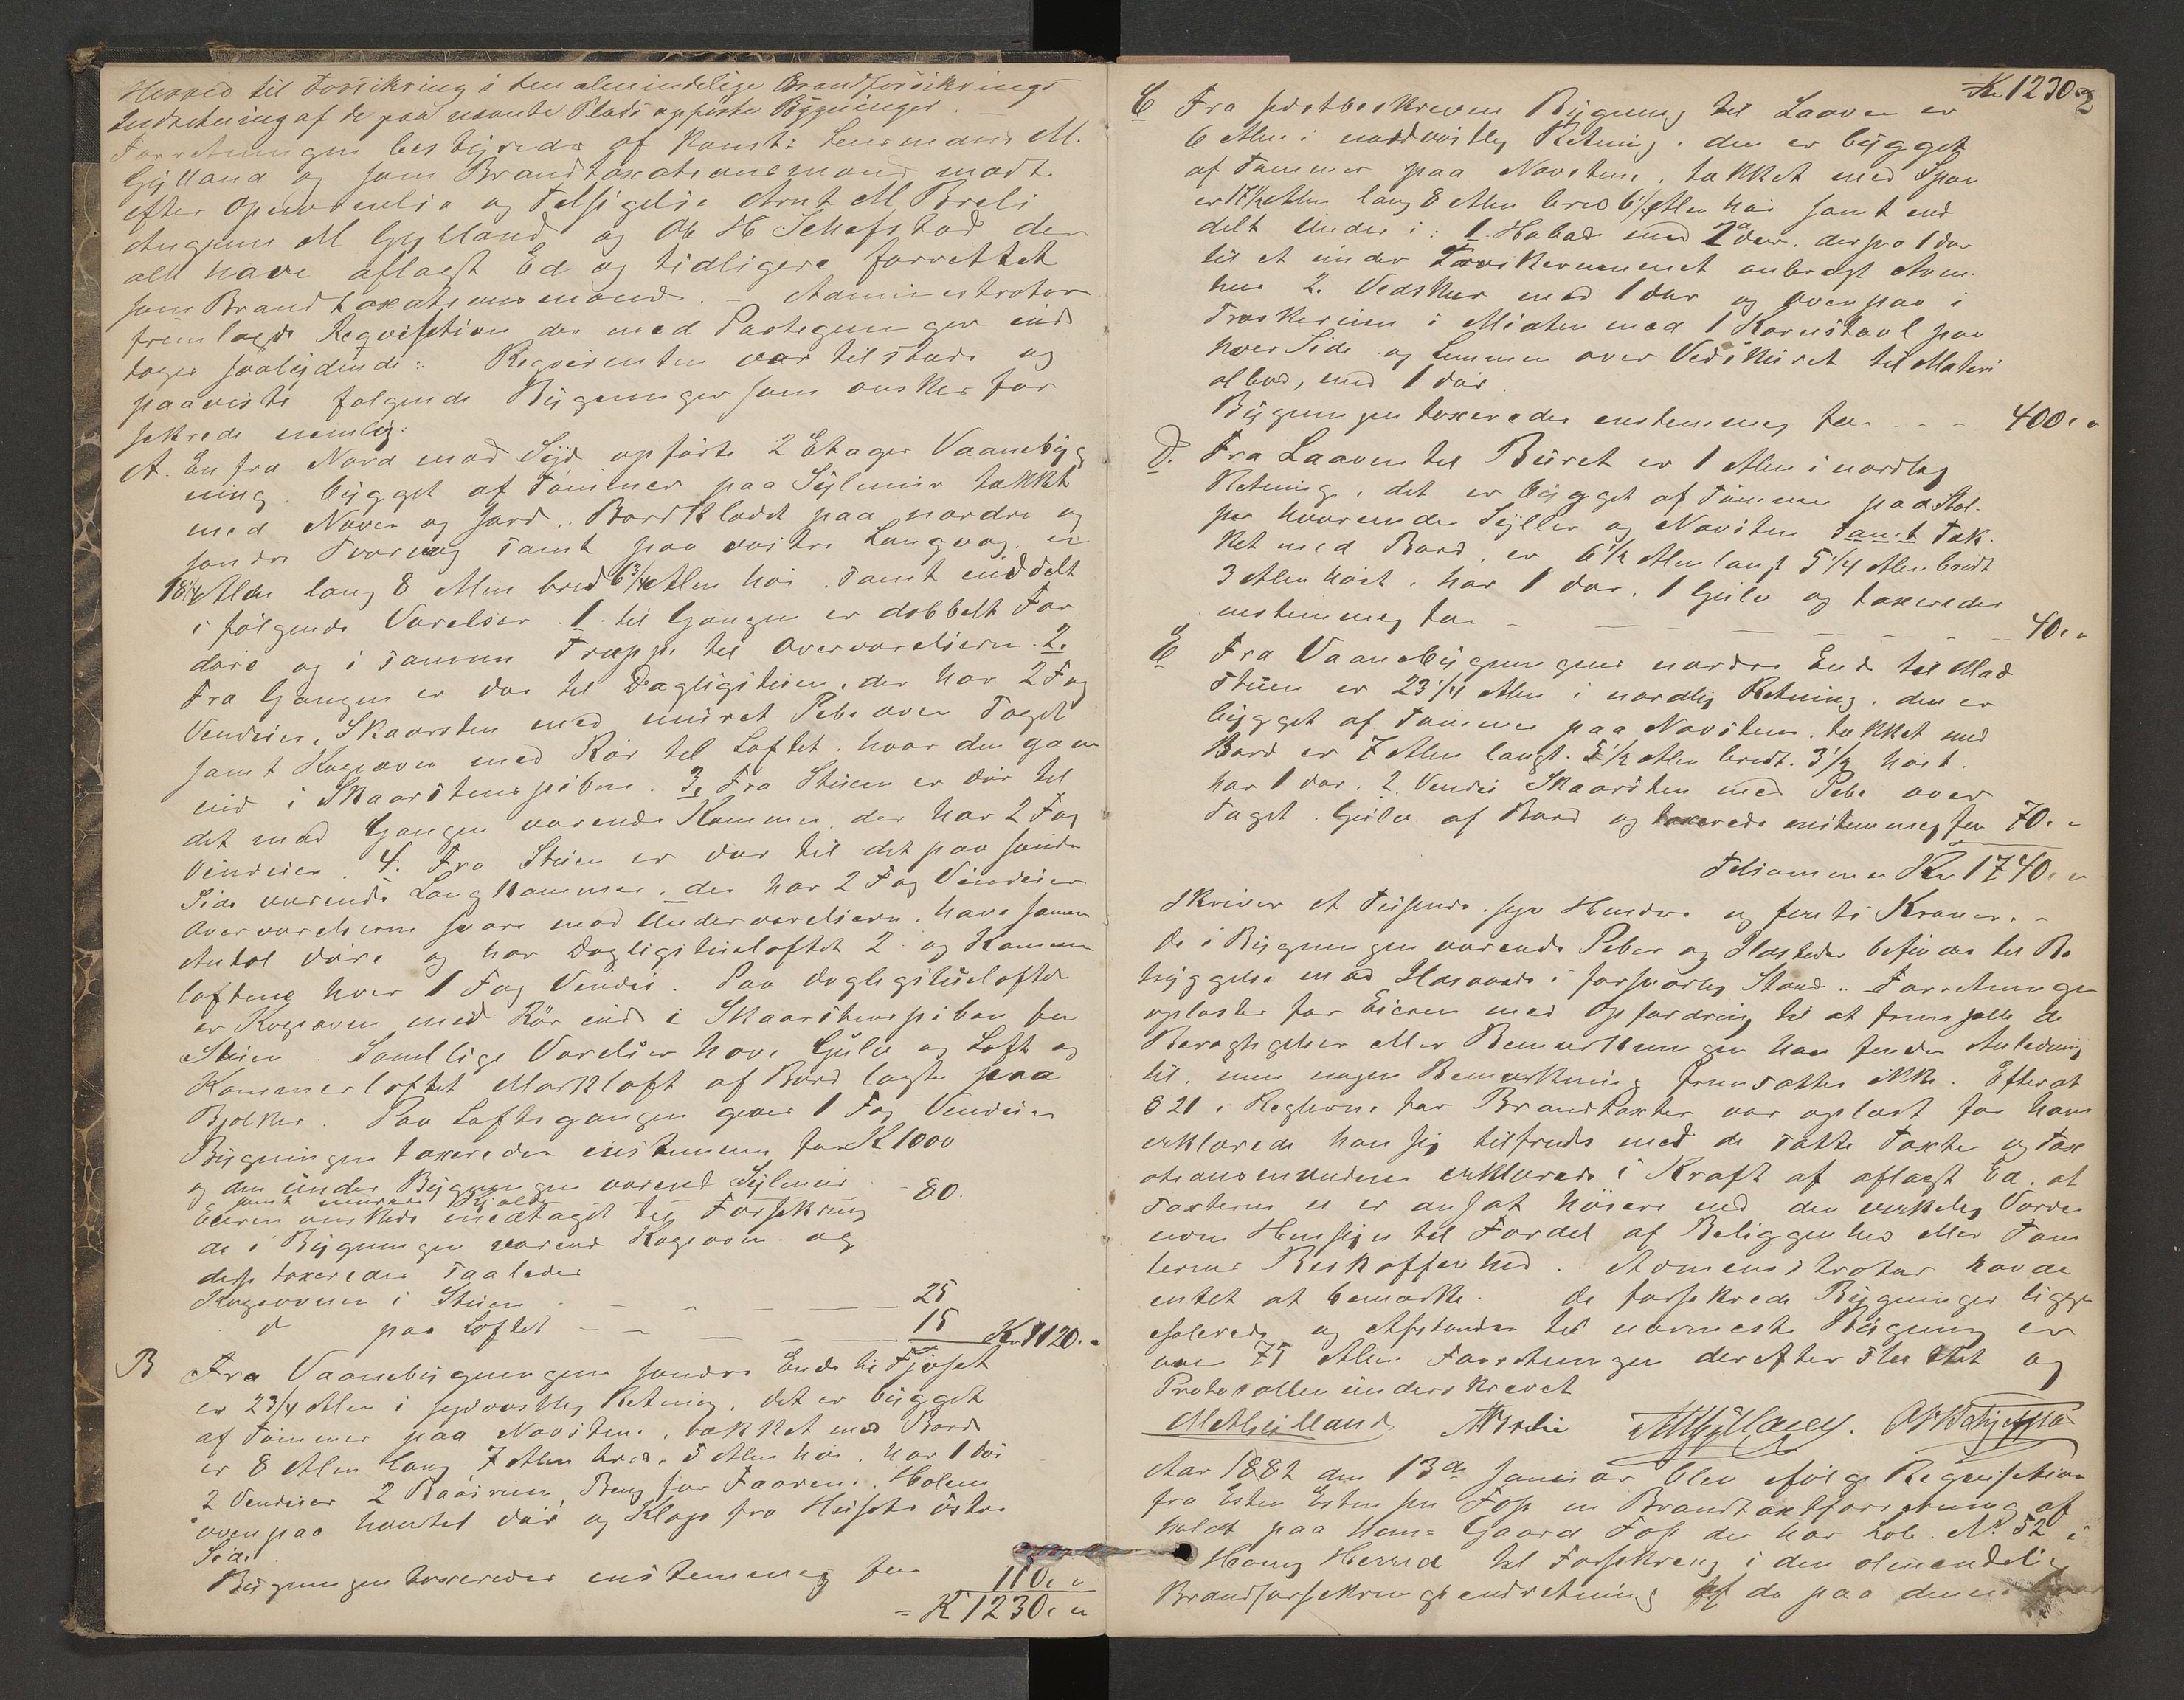 Herred til Forsikring i den almindelige Brandforsikrings
Indretning af de paa nævnte Plads opførte Bygninger.
Forretningen bestyredes af Konst: Lensmand M.
Gylland og som Brandtaxationsmænd mødte
efter Opnævnelse og Tilsigelse Arnt M Breli
Augunn M Gylland og Ole H Schefstad der
alle have aflagt Ed og tidligere forrettet
som Brandtaxationsmænd. – Administrator
fremlagde Reqvisition der med Paategninger ind
tages saalydende: Reqvirenten var tilstede og
paaviste følgende Bygninger som ønskes for
sikrede nemlig:
A. En fra Nord mod Syd opført 2 Etages Vaanebyg
ning, bygget af Tømmer paa Sylmur takket
med Næver og Jord, Bordklædt paa nordre og
søndre Tvervæg samt paa vestre Langvæg er
18 1/4 Alen lang 8 Alen bred 6 3/4 Alen høi samt inddelt
i følgende Værelser. 1. til Gangen er dobbelt For
døre og i samme Trappe til Overværelserne. 2.
Fra Gangen er dør til Dagligstuen, der har 2 Fag
Vinduer, Skaarsten med muret Pibe over Taget
samt Kogeovn med Rør til Loftet, hvor den gaar
ind i Skaarstenspiben. 3. Fra Stuen er dør til
det mod Gangen værende Kammer, der har 2 Fag
Vinduer. 4. Fra Stuen er dør til det paa søndre
Side værende Langkammer, der har 2 Fag Vinduer
Overværelserne svare mod Underværelserne, have samme
Antal døre og har Dagligstueloftet 2 og Kammer
loftene hver 1 Fag Vindu. Paa Dagligstueloftet
er Kogeovn med Rør ind i Skaarstenspiben fra
Stuen. Samtlige Værelser have Gulv og Loft og
Kammerloftet Mørkloft af Bord lagte paa
Bjelker. Paa Loftsgangen er 1 Fag Vinduer
Bygningen taxeredes enstemmig for K 1000
og den under Bygningen værende Sylmur - 80.
samt murede Kjælder
Eieren ønskede medtaget til Forsikring
de i Bygningen værende Kogeovne og
disse taxeredes saaledes
Kogeovnen i Stuen — — — 25
d paa Loftet — — — 15 Kr 1120..
B Fra Vaanebygningens søndre Ende til Fjøset
er 23/4 Alen i sydvestlig Retning, det er bygget
af Tømmer paa Novstene, takket med Bord
er 8 Alen lang 7 Alen bred, 5 Alen høi, har 1 dør
2 Vinduer 2 Baasrum, Beng for Faarene. Halem
ovenpaa hvortil dør og Klap fra Husets østre
Side.
Bygningen taxeredes enstemmig for 110. "
= K 1230. "
Kr 1230. 2
C Fra sidstbeskreven Bygning til Laaven er
6 Alen i nordvestlig Retning, den er bygget
af Tømmer paa Novstene, takket med Spon
er 17 1/2 Alen lang 8 Alen bred 6 1/4 Alen høi samt ind
delt Under i: 1. Høbod med 2 døre, derfra 1 dør
til et under Tærskerummet anbragt Avne
hus 2. Vedskur med 1 dør og ovenpaa i
Træskerum i Midten med 1 Kornstavl paa
hver Side og Lemmen over Vedskuret til Materi
albod, med 1 dør.
Bygningen taxeredes enstemmig for – – – 400. "
D. Fra Laaven til Buret er 1 Alen i nordlig
Retning, det er bygget af Tømmer paa Stol-
per hvorunder Syller og Novsten samt Tæk-
ket med Bord, er 6 1/2 Alen langt 5 1/4 Alen bredt
3 Alen høit, har 1 dør, 1 Gulv og taxeredes
enstemmig for — — — — 40. "
E Fra Vaanebygningens nordre Ende til Mad
stuen er 23 1/4 Alen i nordlig Retning, den er
bygget af Tømmer paa Novstene, takket med
Bord er 7 Alen langt. 5 1/2 Alen bredt. 3 1/2 høit.
har 1 dør. 2 Vindu Skaarsten med Pibe over
Taget. Gulv af Bord og taxeredes enstemmig for 70. "
Tilsammen Kr 1740. "
skriver et Tusende syv Hundre og firti Kroner. -
De i Bygningen værende Piber og Ildsteder befindes til Be
tryggelse mod Ildsvaade i forsvarlig Stand. Forretningen
oplæstes for Eieren med Opfordring til at fremsætte de
Beragtigelser eller Bemærkninger han finder Anledning
til, men nogen Bemærkning fremsattes ikke. Efterat
§ 21 i Reglerne for Brandtaxter var oplæst for ham
erklærede han sig tilfreds med de satte Taxter og Tax
ationsmændene erklærede i Kraft af aflagt Ed, at
Taxterne ei er ansat høiere end den virkelig Værdi
uden Hensyn til Fordel af Beliggenhed eller Tom
ternes Beskaffenhed. Administrator havde
intet at bemærke. De forsikrede Bygninger ligge
isolerede og Afstanden til nærmeste Bygning er
over 75 Alen. Forretningen derefter sluttet og
Protocollen underskrevet
M Gylland AMBrelie AMGylland. OHSchjefstad
Aar 1882 den 13de Januar blev ifølge Reqvisition
fra Esten Estensen Foss en Brandtaxtforretning af
holdt paa hans Gaard Foss der har Løb. No 52 i
Herred til Forsikring i den almindelige
Brandforsikringsindretning af de paa denne